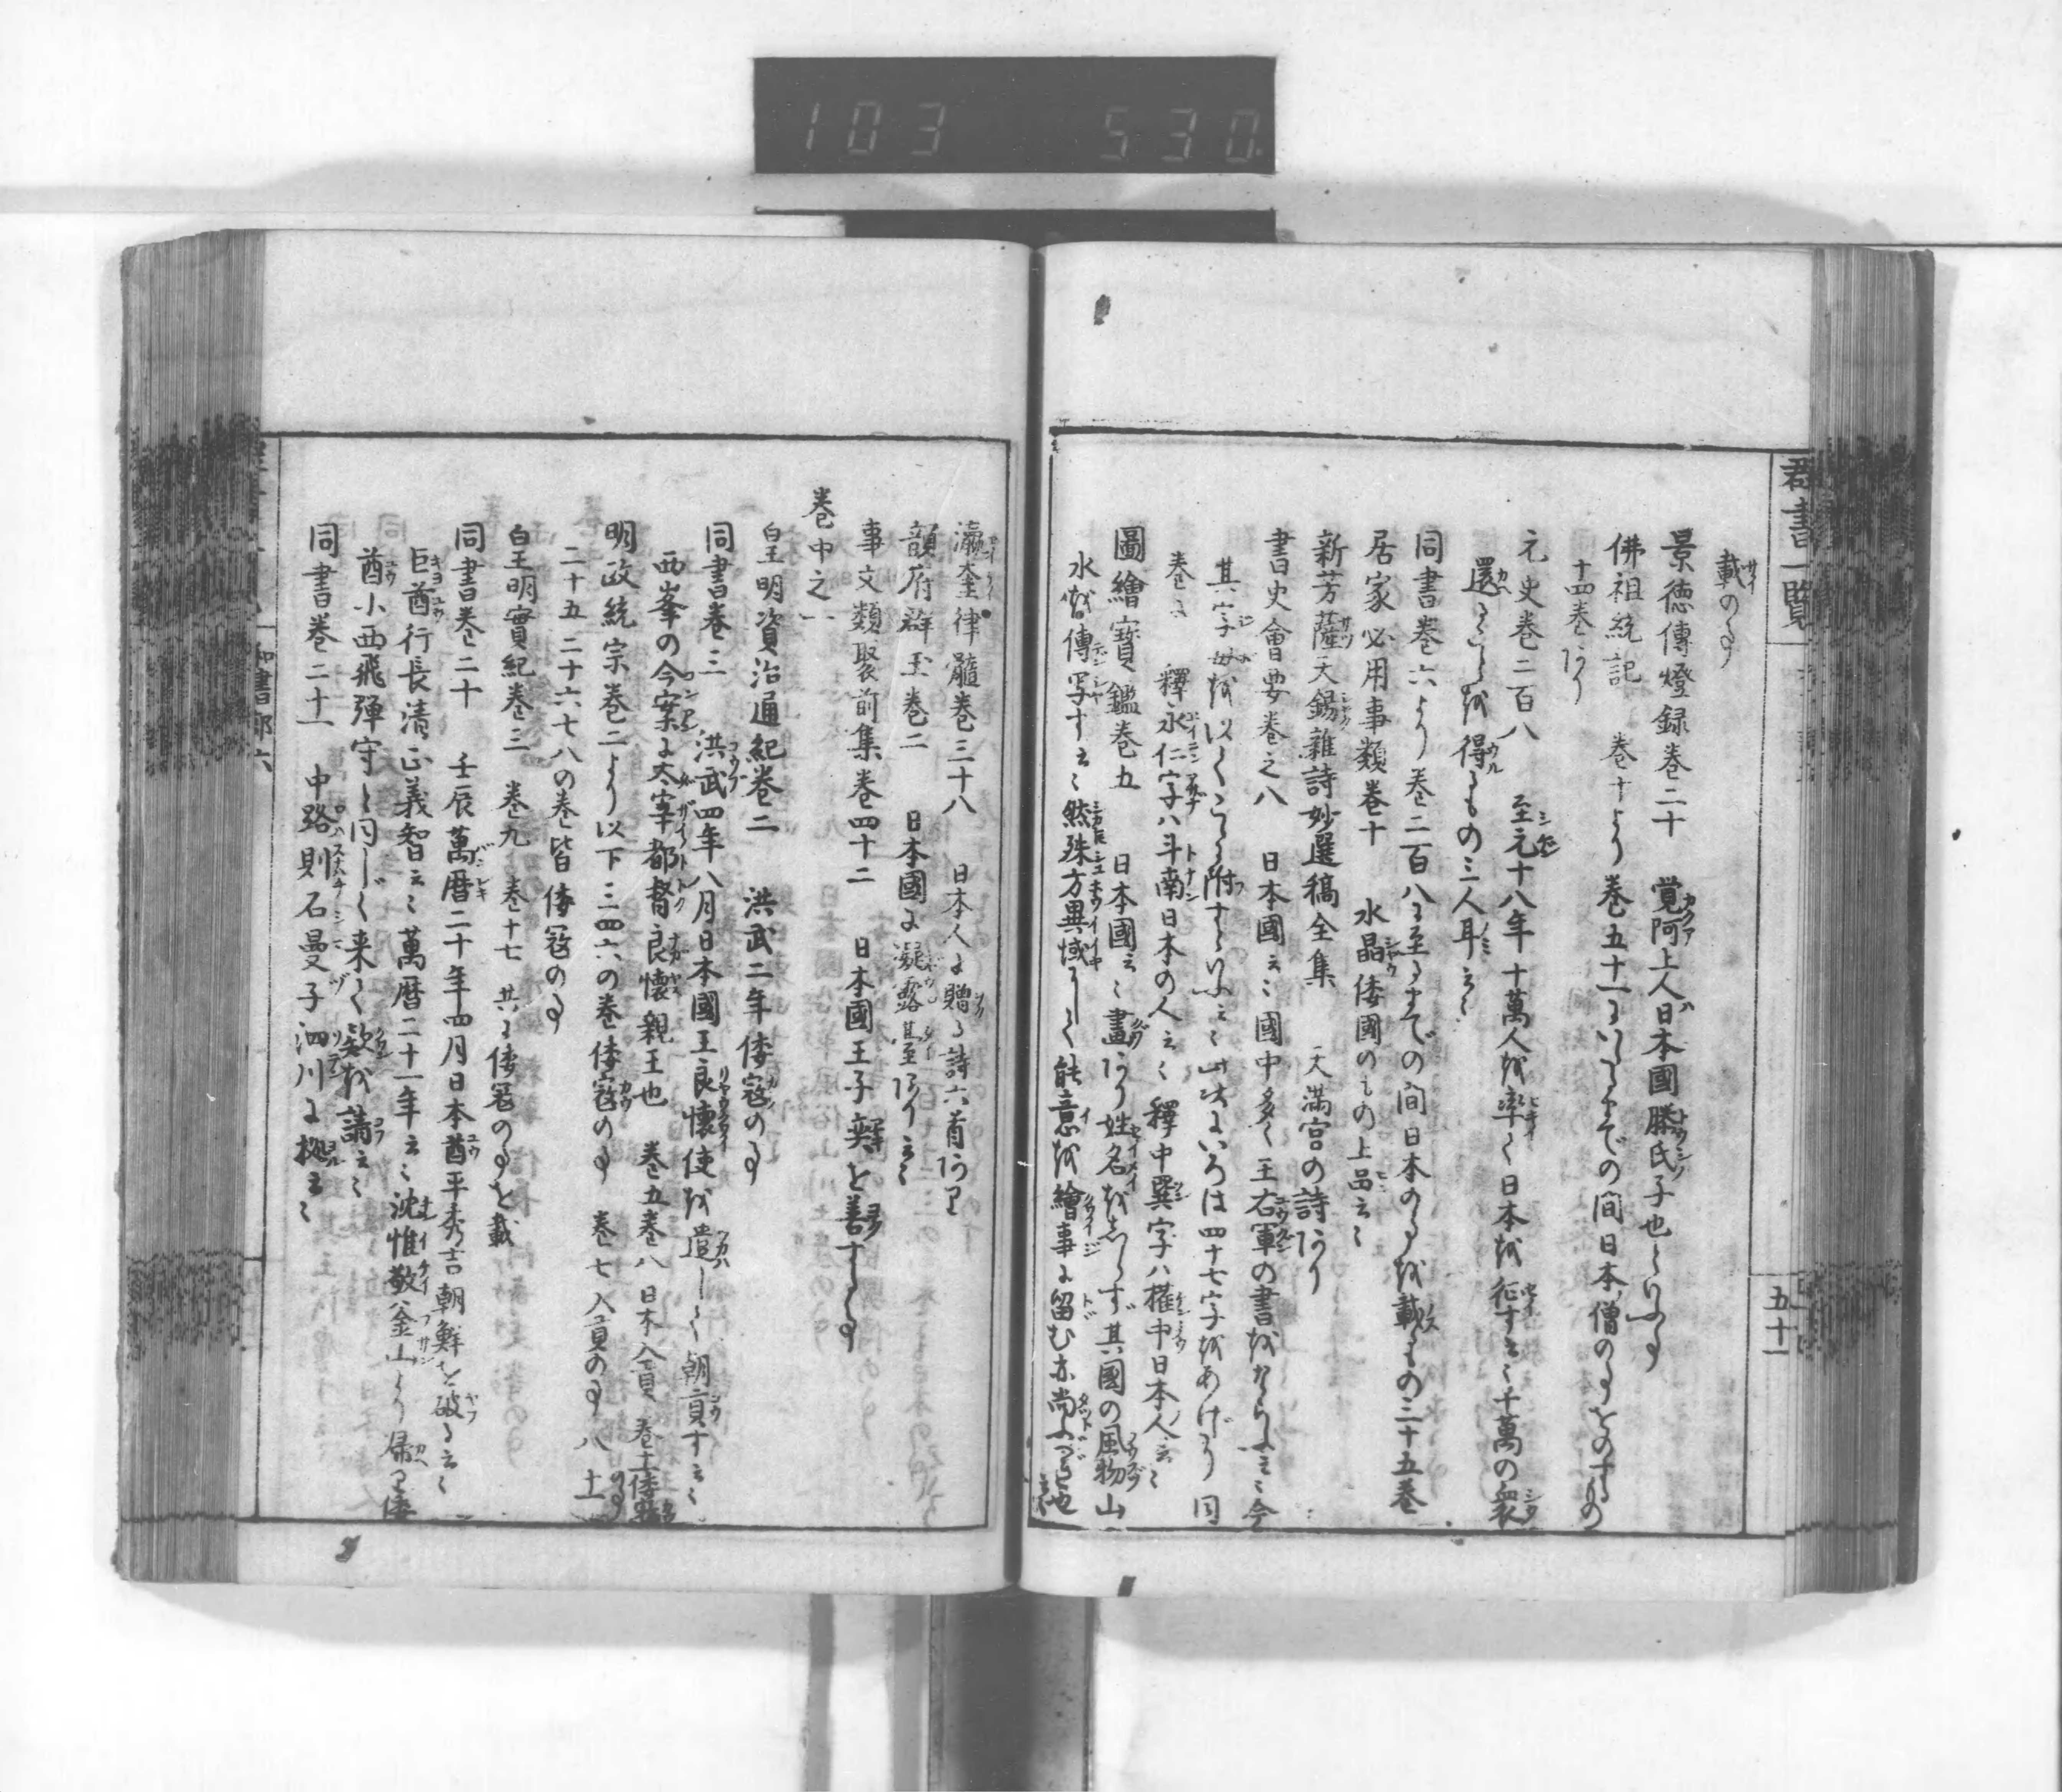 103 530
群書一覧
五十一
載の事
景徳傳燈録巻二十 覚阿上人日本國滕氏子也といふ事
佛祖統記 巻十より 巻五十一にいたるまでの間日本僧の事をのするの
十四巻あり
元史巻二百八 至元十八年十萬人を率て日本を征す云々十萬の衆
還ることを得るもの三人耳云々
同書巻六より巻二百八に至るまでの間日本の事を載るもの三十五巻
居家必用事類巻十 水晶倭國のもの上品云々
新芳薩天錫雑詩妙選稿全集 天満宮の詩あり
書史會要巻之八 日本國云々國中多く王右軍の書をならふ云々今
其字母を以てこゝに附すといふ云々此次にいろは四十七字をあげたり 同
巻に 釋永仁字ハ斗南日本の人云々 釋中巽字ハ權中日本人云々
圖繪寶鑑巻五 日本國云々畫あり姓名をしらず其國の風物山
水を傳写す云々然殊方異域にして能意を繪事に留む亦尚ふべき也
瀛奎律髓巻三十八 日本人に贈る詩六首あり
韻府群玉巻二 日本國に凝露臺あり云々
事文類聚前集巻四十二 日本國王子碁を善すること
巻中之一
皇明資治通紀巻二 洪武二年倭寇の事
同書巻三 洪武四年八月日本國王良懷使を遣して朝貢す云々
西峯の今案に太宰都督良懷親王也 巻五巻八日本入貢 巻十一倭寇の事
明政統宗巻二より以下三四六の巻倭寇の事 巻七入貢の事 八 十一
二十五二十六七八の巻皆倭寇の事
皇明實紀巻三 巻九 巻十七 共に倭寇の事を載
同書巻二十 壬辰萬暦二十年四月日本酋平秀吉朝鮮を破る云々
巨酋行長清正義智云々萬暦二十一年云々沈惟敬釜山より帰り倭
酋小西飛弾守と同じく来て欵を請云々
同書巻二十一 中路則石曼子泗川に拠云々
和書部六